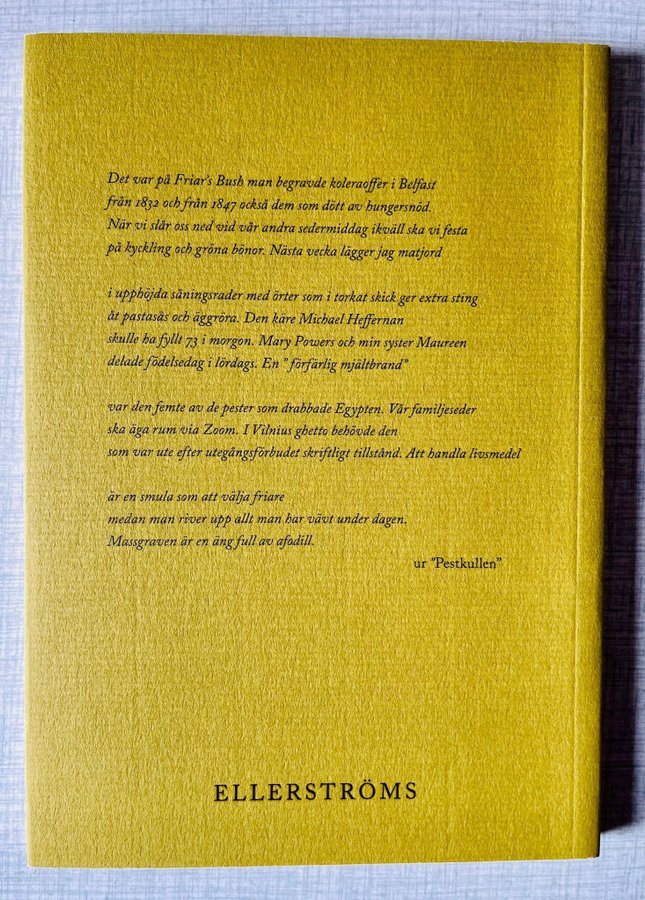 Det var på Friar's Bush man begravde koleraoffer i Belfast
från 1832 och från 1847 också dem som dött av hungersnöd.
När vi slår oss ned vid vår andra sedermiddag ikväll ska vi festa
på kyckling och gröna bönor. Nästa vecka lägger jag matjord
i upphöjda såningsrader med örter som i torkat skick ger extra sting
åt pastasås och äggröra. Den käre Michael Heffernan
skulle ha fyllt 73 i morgon. Mary Powers och min syster Maureen
delade födelsedag i lördags. En ”förfärlig mjältbrand”
var den femte av de pester som drabbade Egypten. Vår familjeseder
ska äga rum via Zoom. I Vilnius ghetto behövde den
som var ute efter utegångsförbudet skriftligt tillstånd. Att handla livsmedel
är en smula som att välja friare
medan man river upp allt man har vävt under dagen.
Massgraven är en äng full av afodill.
ur ”Pestkullen”
ELLERSTRÖMS